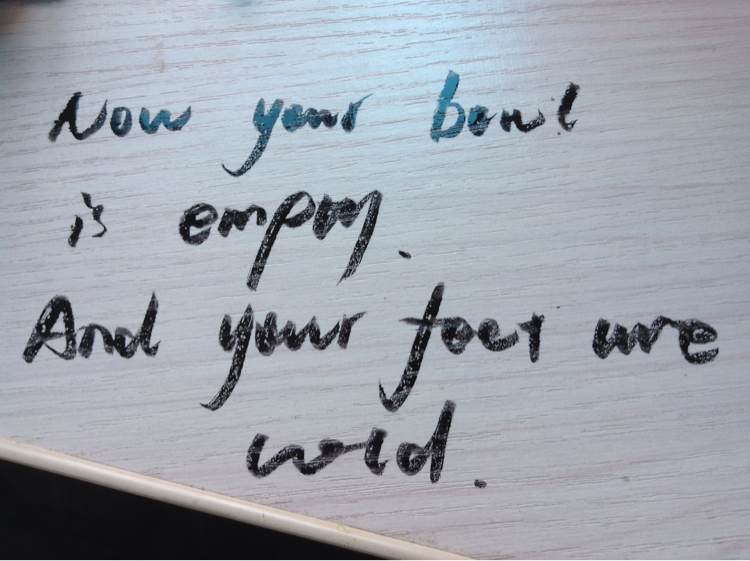 Now your bowl
is empty.
And your feet are
cold.